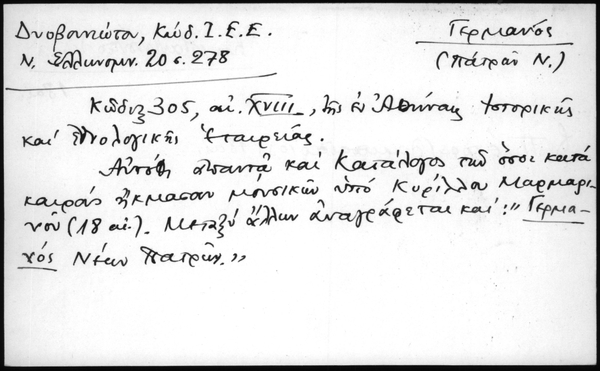 Δυοβουνιώτου, Κώδ. Ι. Ε. Ε.
Ν. Ἑλληνομν. 20 σ. 278
Γερμανός
(Πατρῶν Ν.)
Κῶδιξ 305, αἰ. XVIII, τῆς ἐν Ἀθήναις Ἱστορικῆς
καί Ἐθνολογικῆς Ἑταιρείας.
Αὐτόθι ἀπαντᾷ καί Κατάλογος τῶν ὅσοι κατά
καιρούς ἤκμασαν μουσικῶν ὑπό Κυρίλλου Μαρμαρι-
νοῦ (18 αἰ.). Μεταξύ ἄλλων ἀναγράφεται καί: "Γερμα-
νός Νέων Πατρῶν."